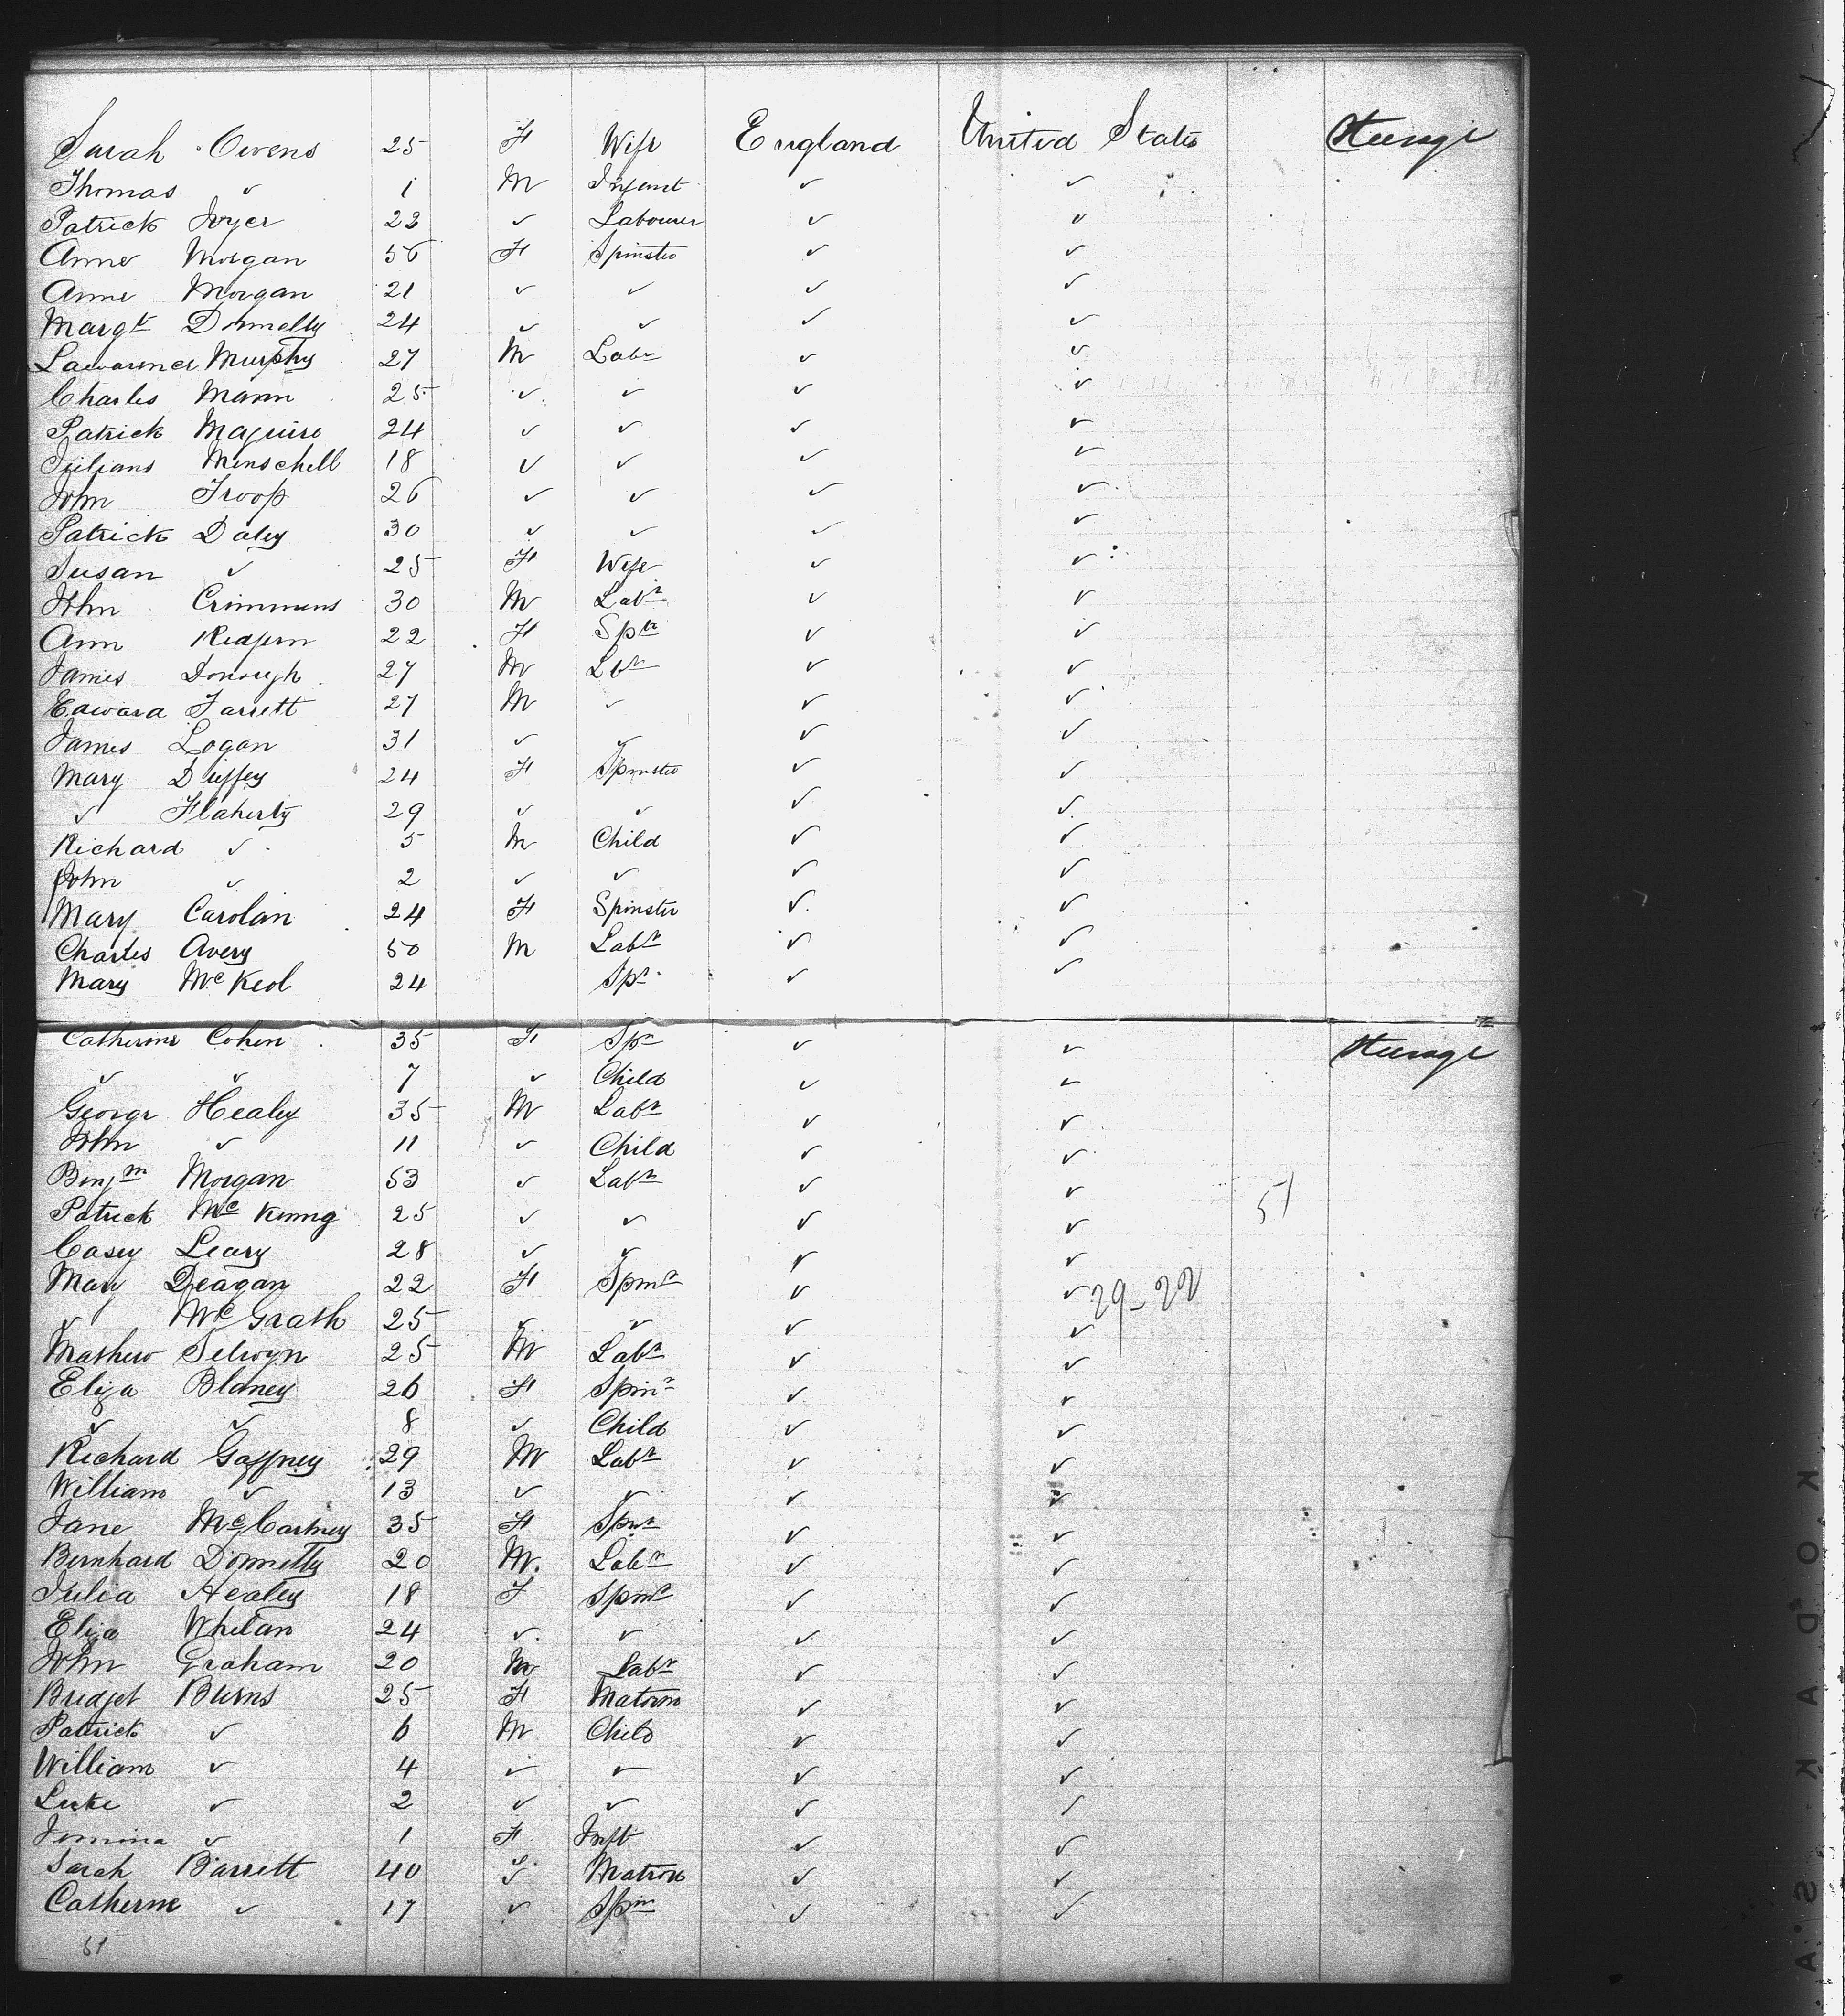 Sarah Owens 25 F Wife England United States Steerage
Thomas ✓ 1 M Infant ✓ ✓
Patrick Dwyer 23 ✓ Labourer ✓ ✓
Anne Morgan 56 F Spinster ✓ ✓
Anne Morgan 21 ✓ ✓ ✓ ✓
Margt Donnelly 24 ✓ ✓ ✓ ✓
Lawarence Murphy 27 M Labr ✓ ✓
Charles Mann 25 ✓ ✓ ✓ ✓
Patrick Maguire 24 ✓ ✓ ✓ ✓
Julians Menschell 18 ✓ ✓ ✓ ✓
John Troop 26 ✓ ✓ ✓ ✓
Patrick Daley 30 ✓ ✓ ✓ ✓
Susan ✓ 25 F Wife ✓ ✓
John Crimmens 30 M Labr ✓ ✓
Ann Redfern 22 F Sptr ✓ ✓
James Donough 27 M Lbr ✓ ✓
Edward Jarrett 27 M ✓ ✓ ✓
James Logan 31 ✓ ✓ ✓ ✓
Mary Duffey 24 F Spinster ✓ ✓
✓ Flaherty 29 ✓ ✓ ✓ ✓
Richard ✓ 5 M Child ✓ ✓
John ✓ 2 ✓ ✓ ✓ ✓
Mary Carolan 24 F Spinster ✓ ✓
Charles Avery 50 M Labr ✓ ✓
Mary Mc Keol 24 Spr ✓ ✓
Catherine Cohen 35 F Spr ✓ ✓ Steerage
✓ ✓ 7 ✓ Child ✓ ✓
George Healey 35 M Labr ✓ ✓
John ✓ 11 ✓ Child ✓ ✓
Benjm Morgan 53 ✓ Labr ✓ ✓
Patrick Mc Kenng 25 ✓ ✓ ✓ ✓ 51
Casey Leary 28 ✓ ✓ ✓ ✓
Mary Deagan 22 F Spinr ✓ ✓ 29-22
✓ Mc Grath 25 ✓ ✓ ✓ ✓
Mathew Selwyn 25 M Labr ✓ ✓
Eliza Blaney 26 F Spinr ✓ ✓
✓ ✓ 8 ✓ Child ✓ ✓
Richard Gaffney 29 M Labr ✓ ✓
William ✓ 13 ✓ ✓ ✓ ✓
Jane McCartney 35 F Spnr ✓ ✓
Bernhard Donnelly 20 M. Labr ✓ ✓
Julia Healey 18 F Spinr ✓ ✓
Eliza Whelan 24 ✓ ✓ ✓ ✓
John Graham 20 M Labr ✓ ✓
Bridget Burns 25 F Matorn ✓ ✓
Patrick ✓ 6 M Child ✓ ✓
William ✓ 4 ✓ ✓ ✓ ✓
Luke ✓ 2 ✓ ✓ ✓ ✓
Jemina ✓ 1 F Inft ✓ ✓
Sarah Barrett 40 ✓ Matron ✓ ✓
Catherine ✓ 17 ✓ Spin ✓ ✓
51
KODAK